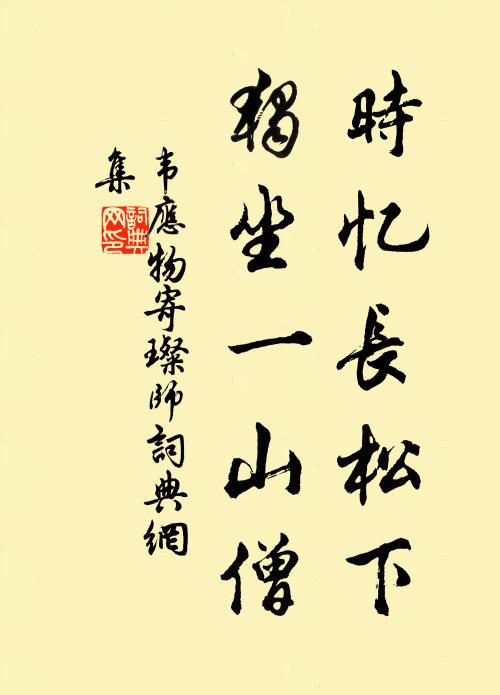 時忆長松下
獨坐一山僧
韦應物寄璨師詞典網
集
詞典网印